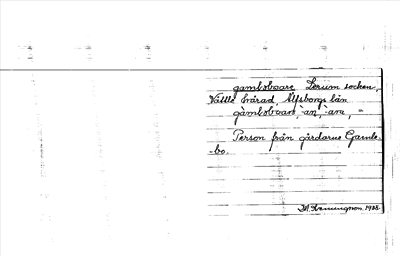 gamlsboare, Lerum socken,
Vättle härad, Älfsborgs län
gàmlsboarə, -an, -arə, =
Person från gårdarne Gamls-
-bo.
M. Henningson. 1928